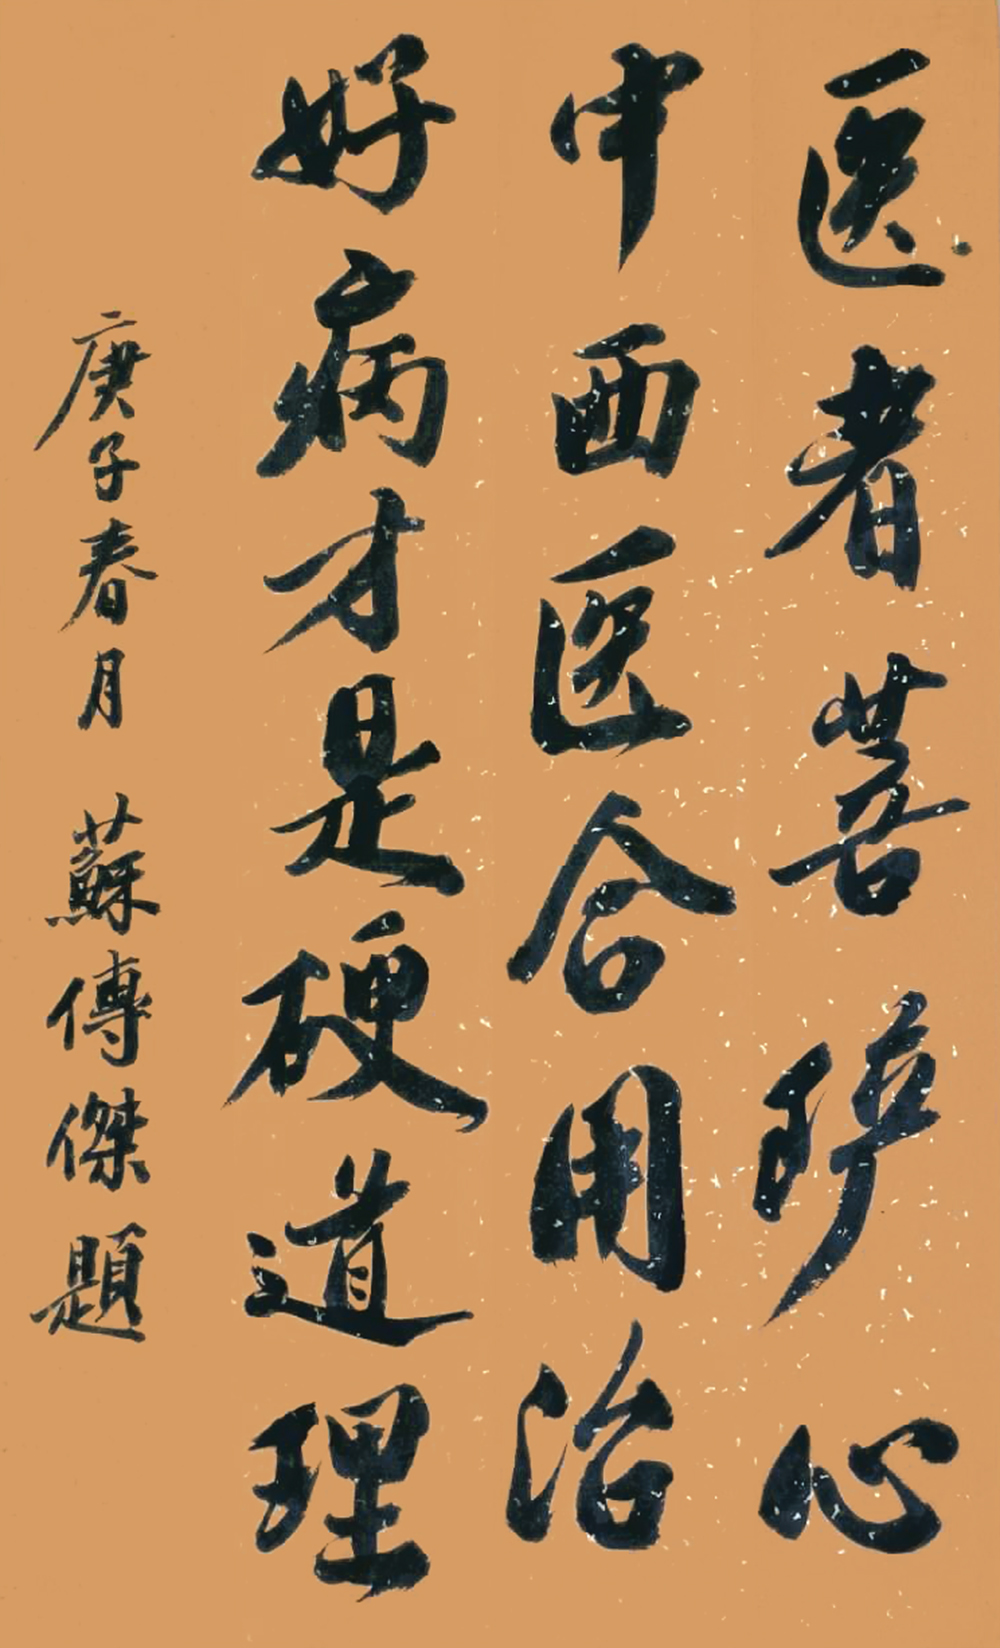 医者菩萨心
中西医合用治
好病才是硬道理
庚子春月 蘇傳傑題